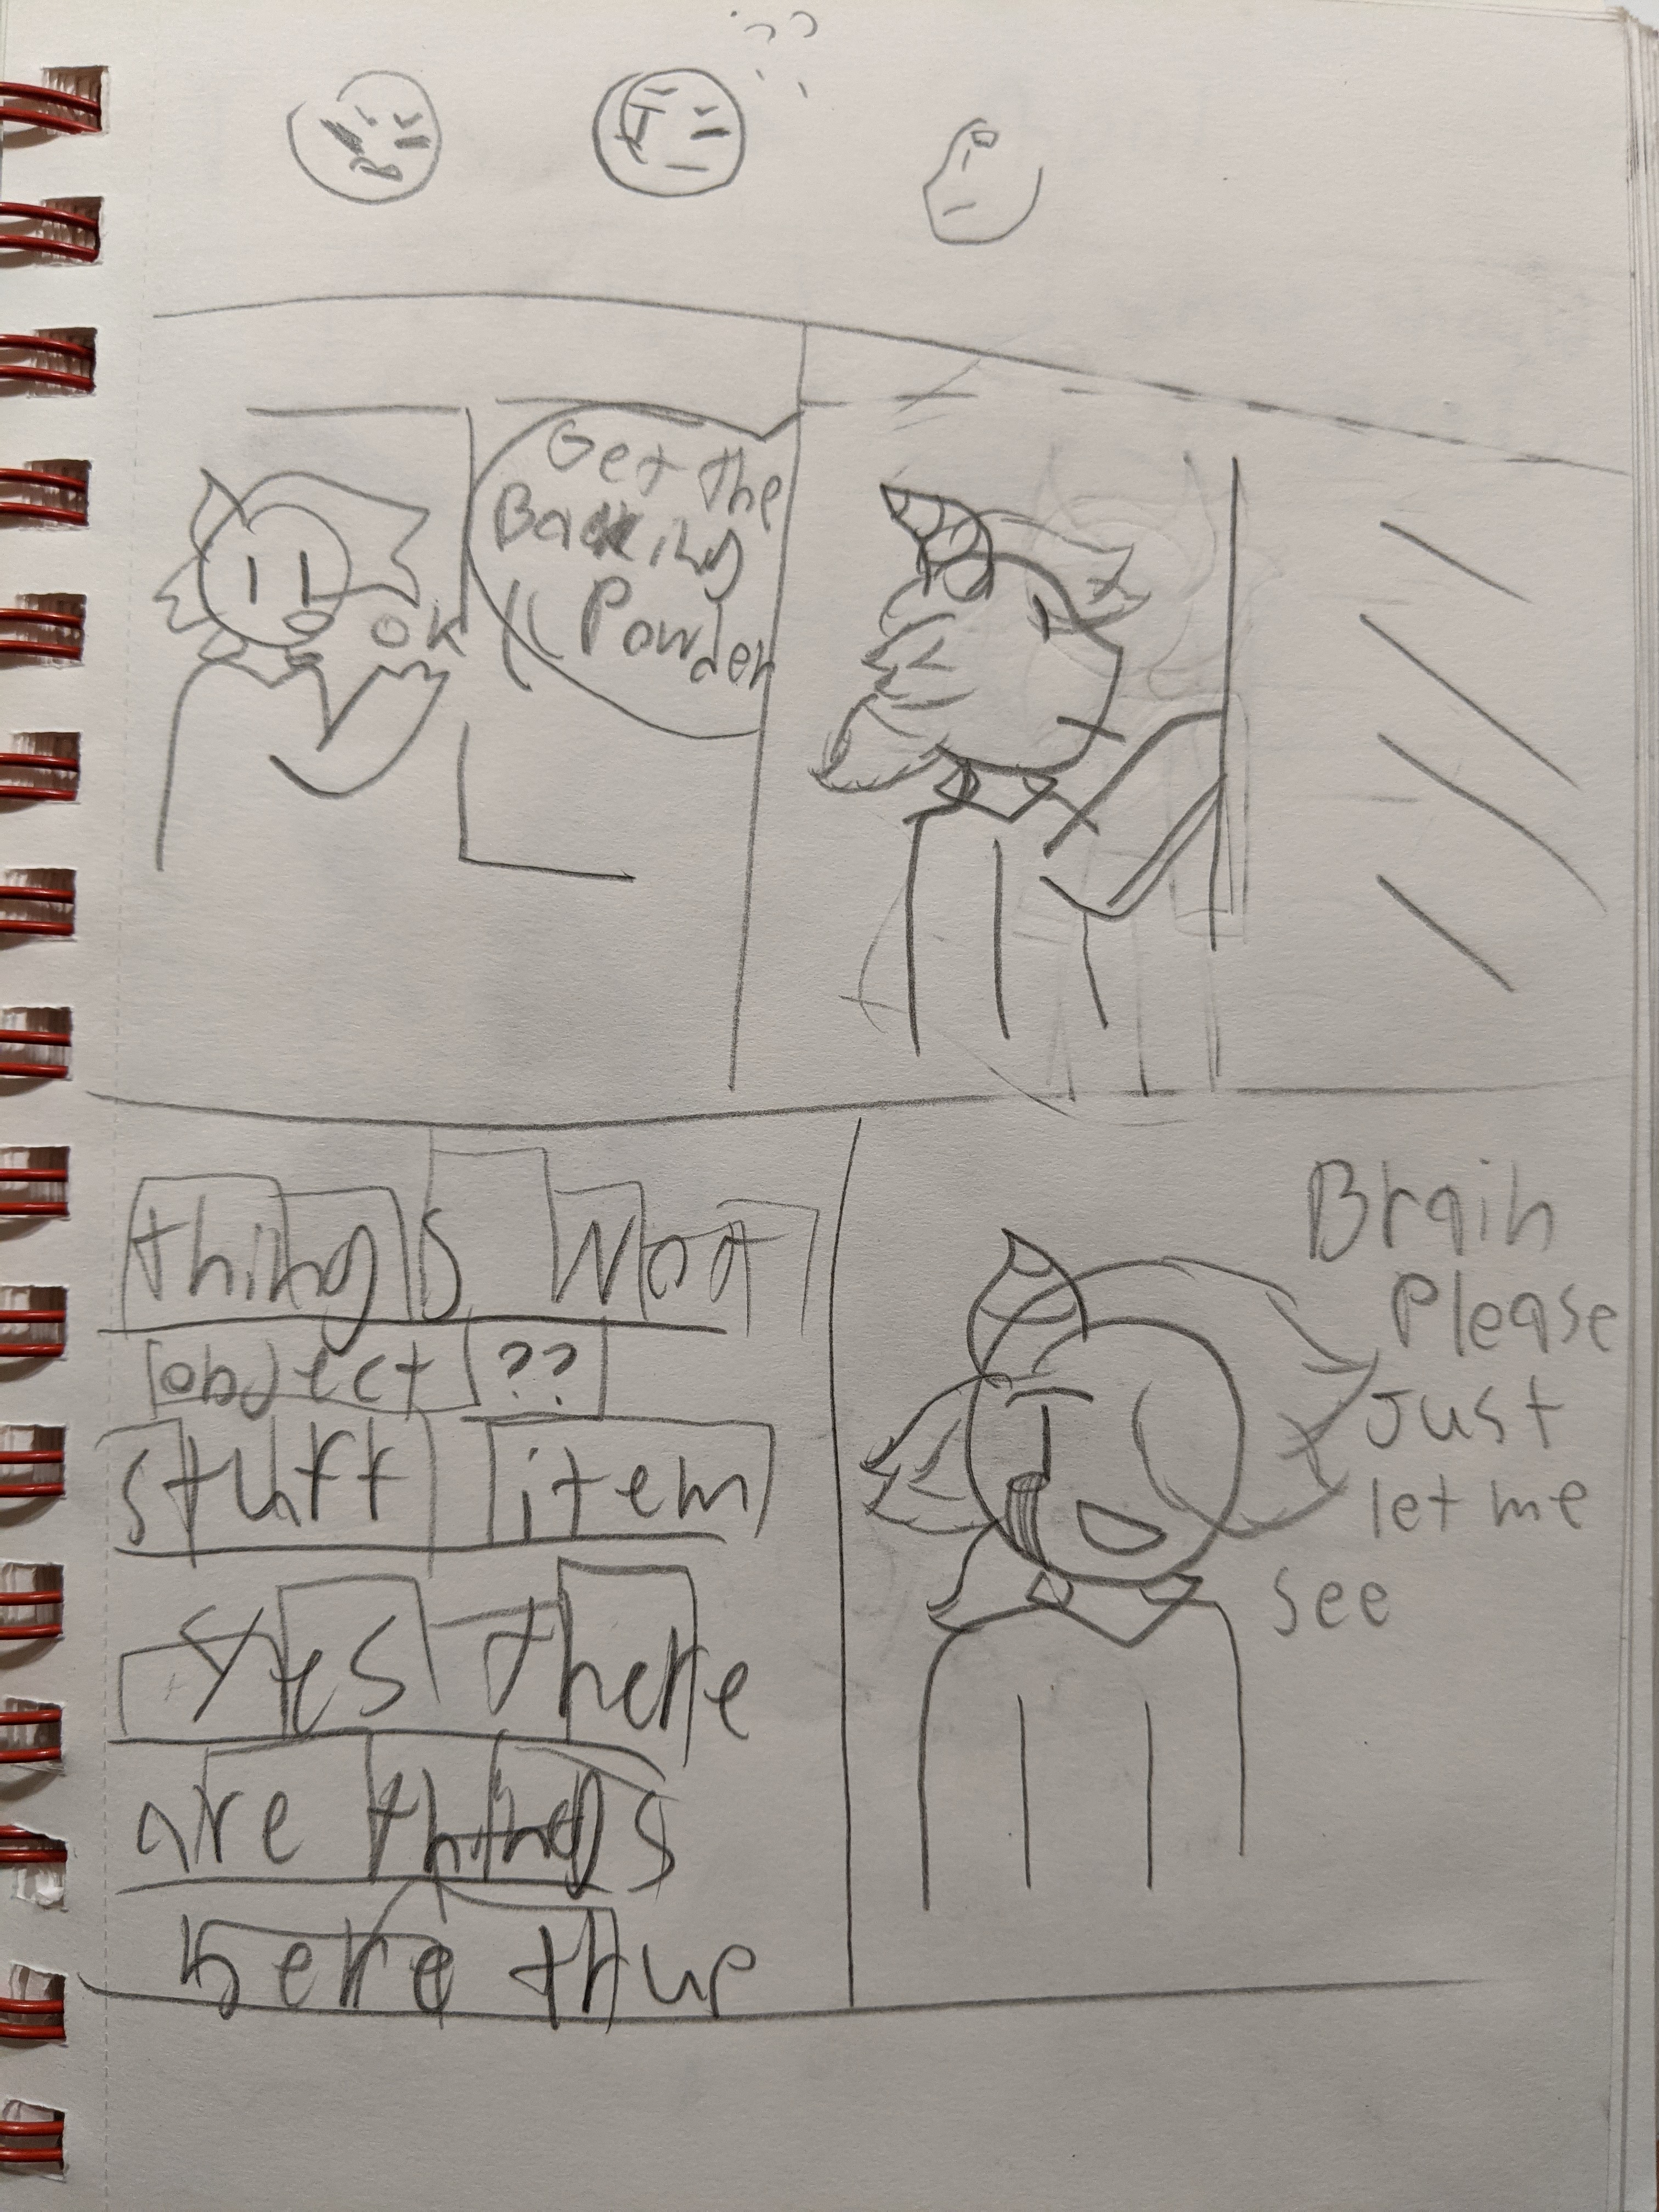 ??
Get the
Backing
Powder
OK
things Woa
object ??
stuff item
Yes there
are things
here thup
Brain
Please
Just
let me
see